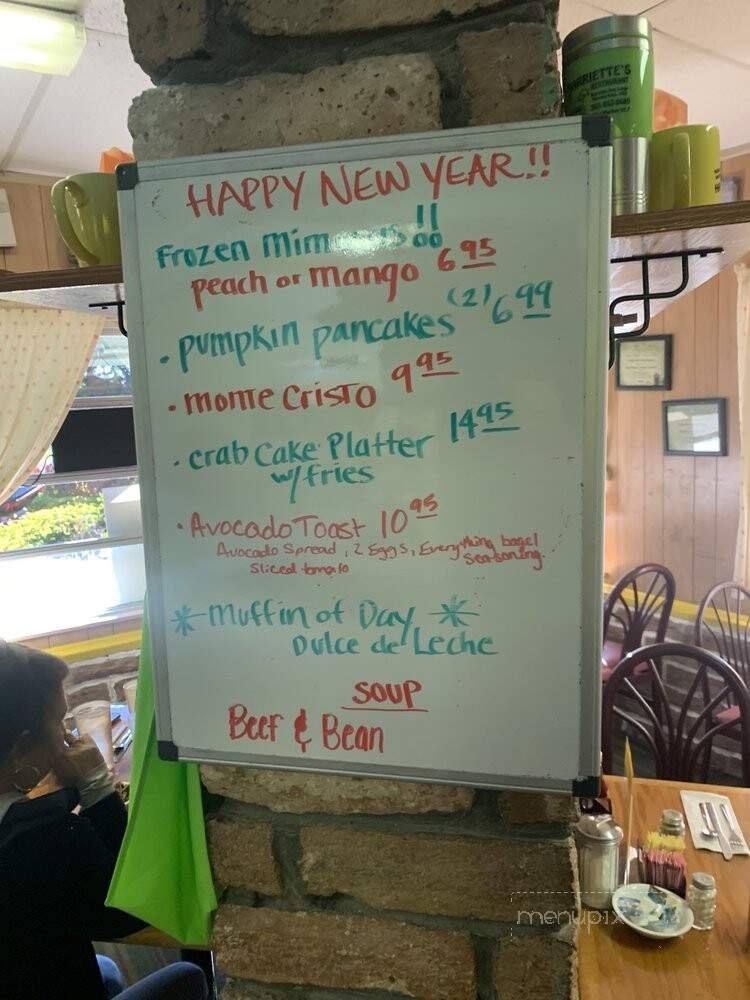 HAPPY NEW YEAR!!
Frozen Mimosas!!
peach or mango 6 95
• pumpkin pancakes (2) 6 99
• monte Cristo 9 95
• crab Cake Platter 14 95
w/fries
• Avocado Toast 10 95
Avocado Spread, 2 Eggs, Everything bagel
Sliced tomato seasoning
* Muffin of Day *
Dulce de Leche
SOUP
Beef & Bean
HARRIETTE'S
RESTAURANT
menupix